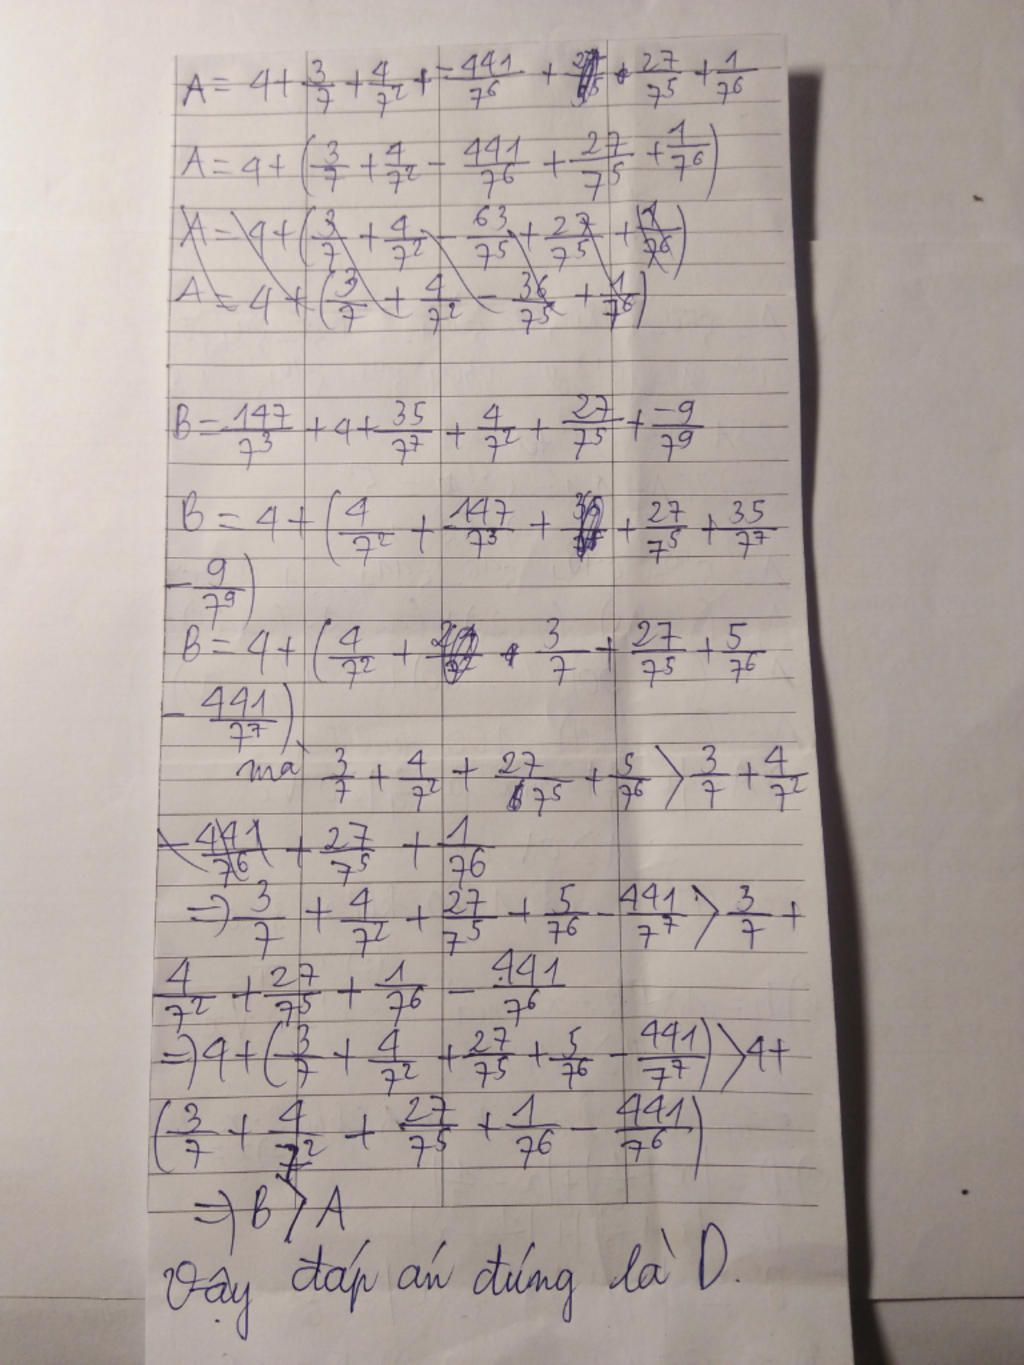 A = 4 + 3/7 + 4/7² + -441/7⁶ + 27/7⁵ + 1/7⁶
A = 4 + (3/7 + 4/7² - 441/7⁶ + 27/7⁵ + 1/7⁶)
A = 4 + (3/7 + 4/7² - 63/7⁵ + 27/7⁵ + 1/7⁶)
A = 4 + (3/7 + 4/7² - 36/7⁵ + 1/7⁶)
B = 147/7³ + 4 + 35/7⁷ + 4/7² + 27/7⁵ + -9/7⁹
B = 4 + (4/7² + 147/7³ + + 27/7⁵ + 35/7⁷
- 9/7⁹)
B = 4 + (4/7² + 3/7 + 27/7⁵ + 5/7⁶
- 441/7⁷)
mà 3/7 + 4/7² + 27/7⁵ + 5/7⁶ > 3/7 + 4/7²
- 441/7⁶ + 27/7⁵ + 1/7⁶
=> 3/7 + 4/7² + 27/7⁵ + 5/7⁶ - 441/7⁷ > 3/7 +
4/7² + 27/7⁵ + 1/7⁶ - 441/7⁶
=> 4 + (3/7 + 4/7² + 27/7⁵ + 5/7⁶ - 441/7⁷) > 4 +
(3/7 + 4/7² + 27/7⁵ + 1/7⁶ - 441/7⁶)
=> B > A
Vậy đáp án đúng là D.